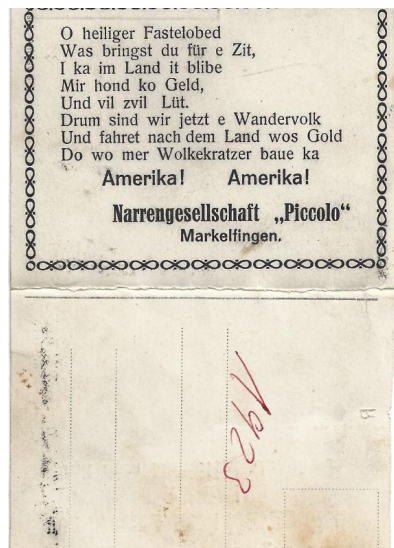 O heiliger Fastelobed
Was bringst du für e Zit,
I ka im Land it blibe
Mir hond ko Geld,
Und vil zvil Lüt.
Drum sind wir jetzt e Wandervolk
Und fahret nach dem Land wos Gold
Do wo mer Wolkekratzer baue ka
Amerika! Amerika!
Narrengesellschaft „Piccolo“
Markelfingen.
1923